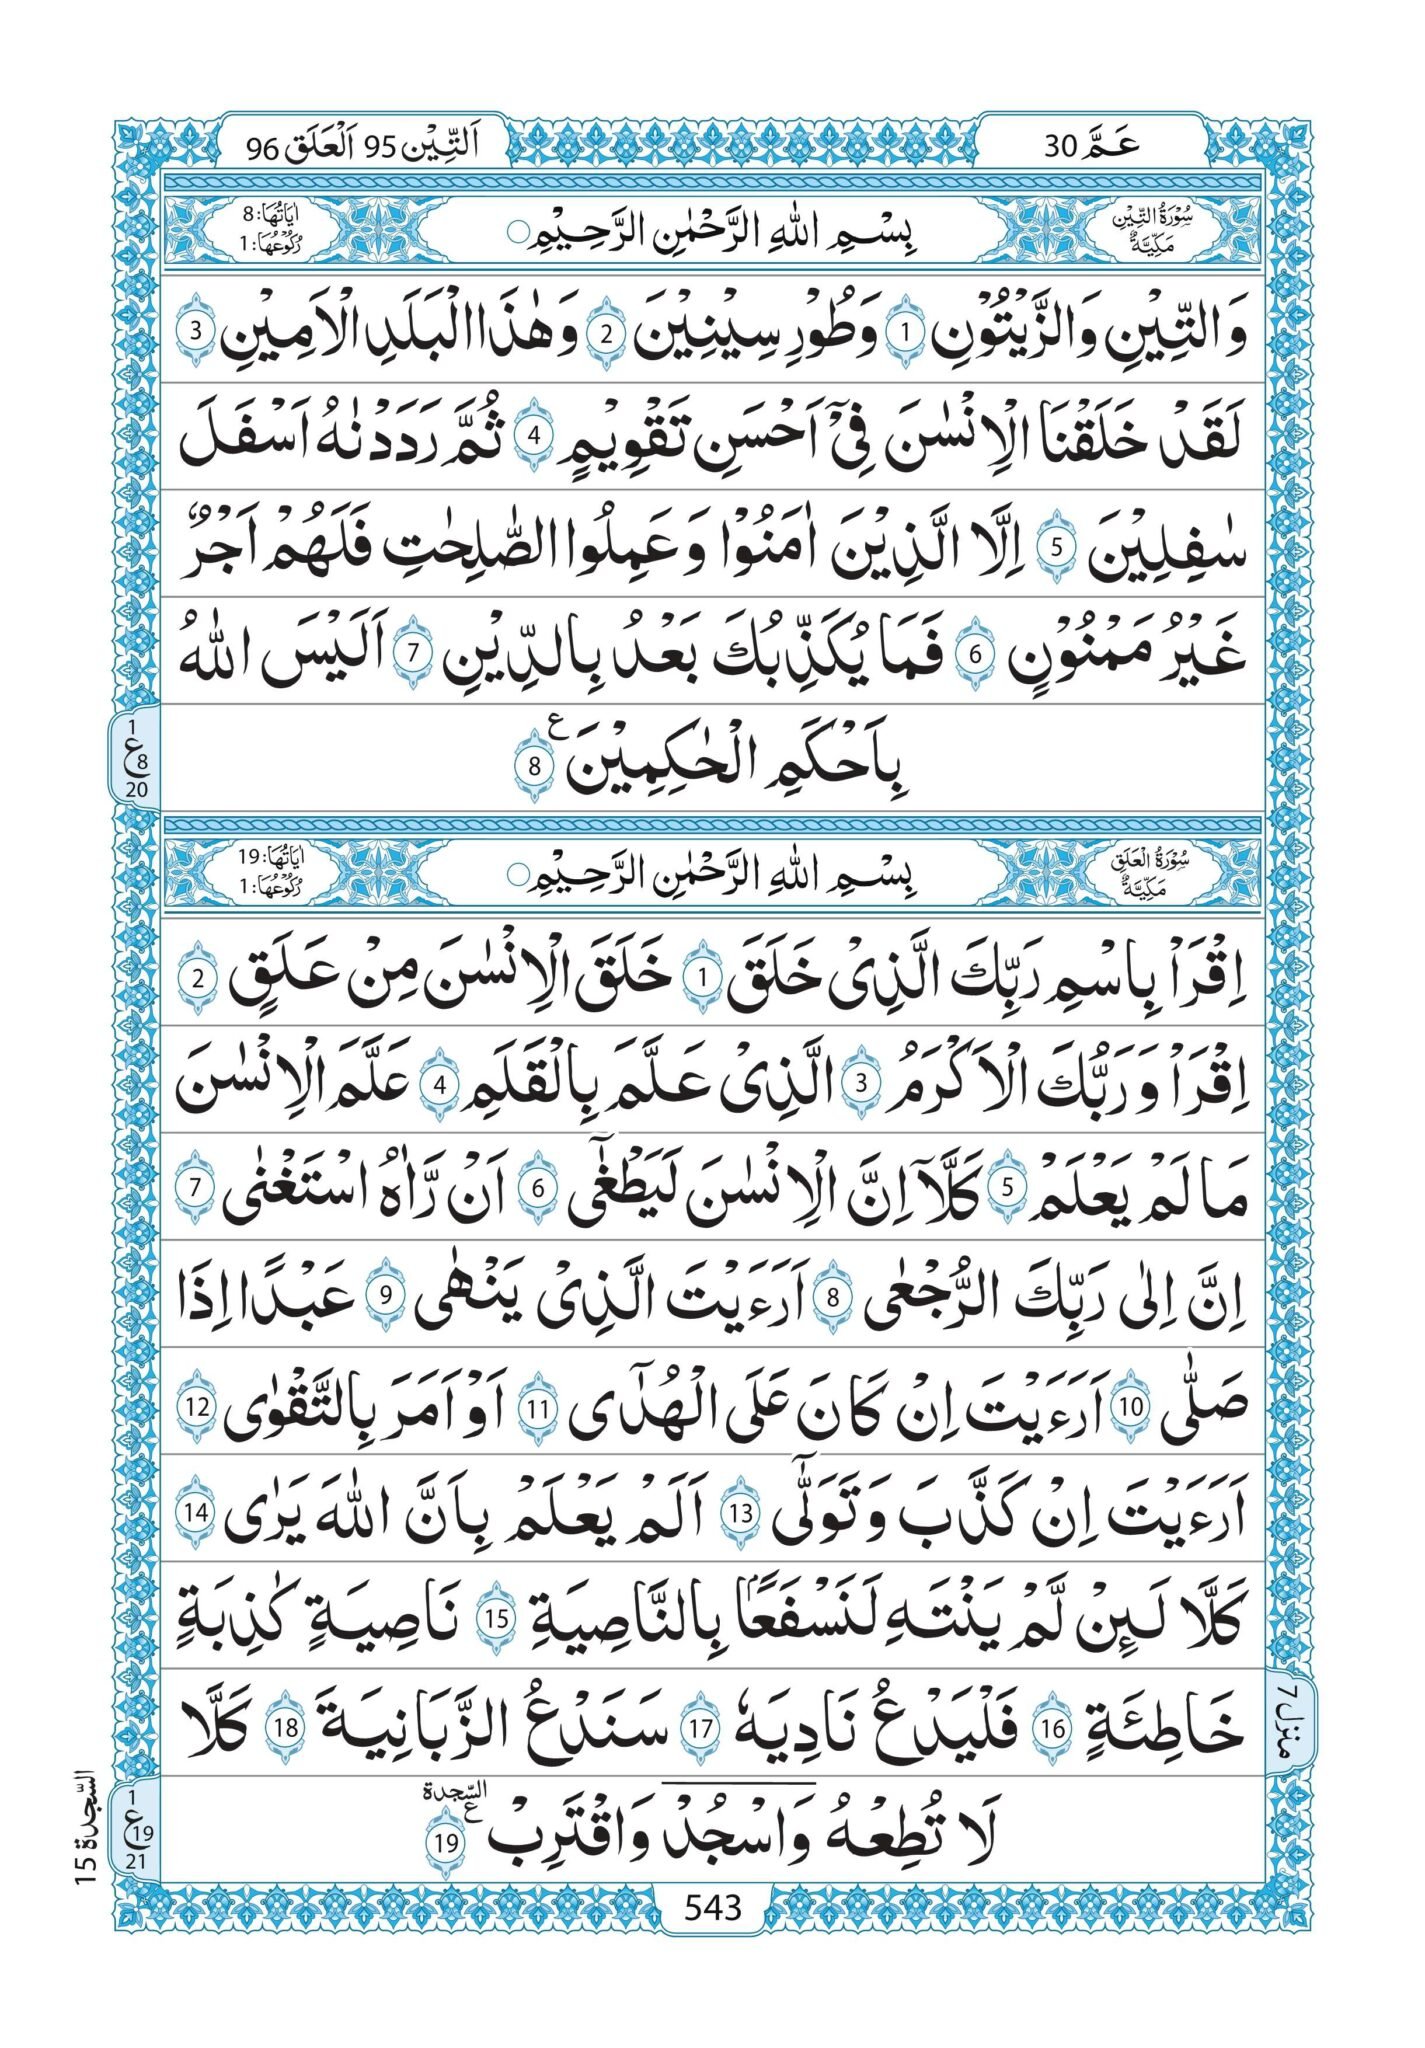 عَمَّ 30
اَلتِّيْن 95 اَلْعَلَق 96
سُوْرَةُ التِّيْنِ مَكِّيَّةٌ
بِسْمِ اللّٰهِ الرَّحْمٰنِ الرَّحِيْمِ ○
اٰيَاتُهَا: 8
رُكُوْعُهَا: 1
وَالتِّيْنِ وَالزَّيْتُوْنِ 1 وَطُوْرِ سِيْنِيْنَ 2 وَهٰذَا الْبَلَدِ الْاَمِيْنِ 3
لَقَدْ خَلَقْنَا الْاِنْسٰنَ فِيْٓ اَحْسَنِ تَقْوِيْمٍ 4 ثُمَّ رَدَدْنٰهُ اَسْفَلَ
سٰفِلِيْنَ 5 اِلَّا الَّذِيْنَ اٰمَنُوْا وَعَمِلُوا الصّٰلِحٰتِ فَلَهُمْ اَجْرٌ
غَيْرُ مَمْنُوْنٍ 6 فَمَا يُكَذِّبُكَ بَعْدُ بِالدِّيْنِ 7 اَلَيْسَ اللّٰهُ
بِاَحْكَمِ الْحٰكِمِيْنَ ع 8
1
ع 8
20
سُوْرَةُ الْعَلَقِ مَكِّيَّةٌ
بِسْمِ اللّٰهِ الرَّحْمٰنِ الرَّحِيْمِ ○
اٰيَاتُهَا: 19
رُكُوْعُهَا: 1
اِقْرَاْ بِاسْمِ رَبِّكَ الَّذِيْ خَلَقَ 1 خَلَقَ الْاِنْسٰنَ مِنْ عَلَقٍ 2
اِقْرَاْ وَرَبُّكَ الْاَكْرَمُ 3 الَّذِيْ عَلَّمَ بِالْقَلَمِ 4 عَلَّمَ الْاِنْسٰنَ
مَا لَمْ يَعْلَمْ 5 كَلَّآ اِنَّ الْاِنْسٰنَ لَيَطْغٰٓى 6 اَنْ رَّاٰهُ اسْتَغْنٰى 7
اِنَّ اِلٰى رَبِّكَ الرُّجْعٰى 8 اَرَءَيْتَ الَّذِيْ يَنْهٰى 9 عَبْدًا اِذَا
صَلّٰى 10 اَرَءَيْتَ اِنْ كَانَ عَلَى الْهُدٰٓى 11 اَوْ اَمَرَ بِالتَّقْوٰى 12
اَرَءَيْتَ اِنْ كَذَّبَ وَتَوَلّٰٓى 13 اَلَمْ يَعْلَمْ بِاَنَّ اللّٰهَ يَرٰى 14
كَلَّا لَئِنْ لَّمْ يَنْتَهِ لَنَسْفَعًۢا بِالنَّاصِيَةِ 15 نَاصِيَةٍ كٰذِبَةٍ
خَاطِئَةٍ 16 فَلْيَدْعُ نَادِيَهٗ 17 سَنَدْعُ الزَّبَانِيَةَ 18 كَلَّا
لَا تُطِعْهُ وَاسْجُدْ وَاقْتَرِبْ السّجدة ع 19
منزل 7
1
ع 19
21
السّجدة 15
543